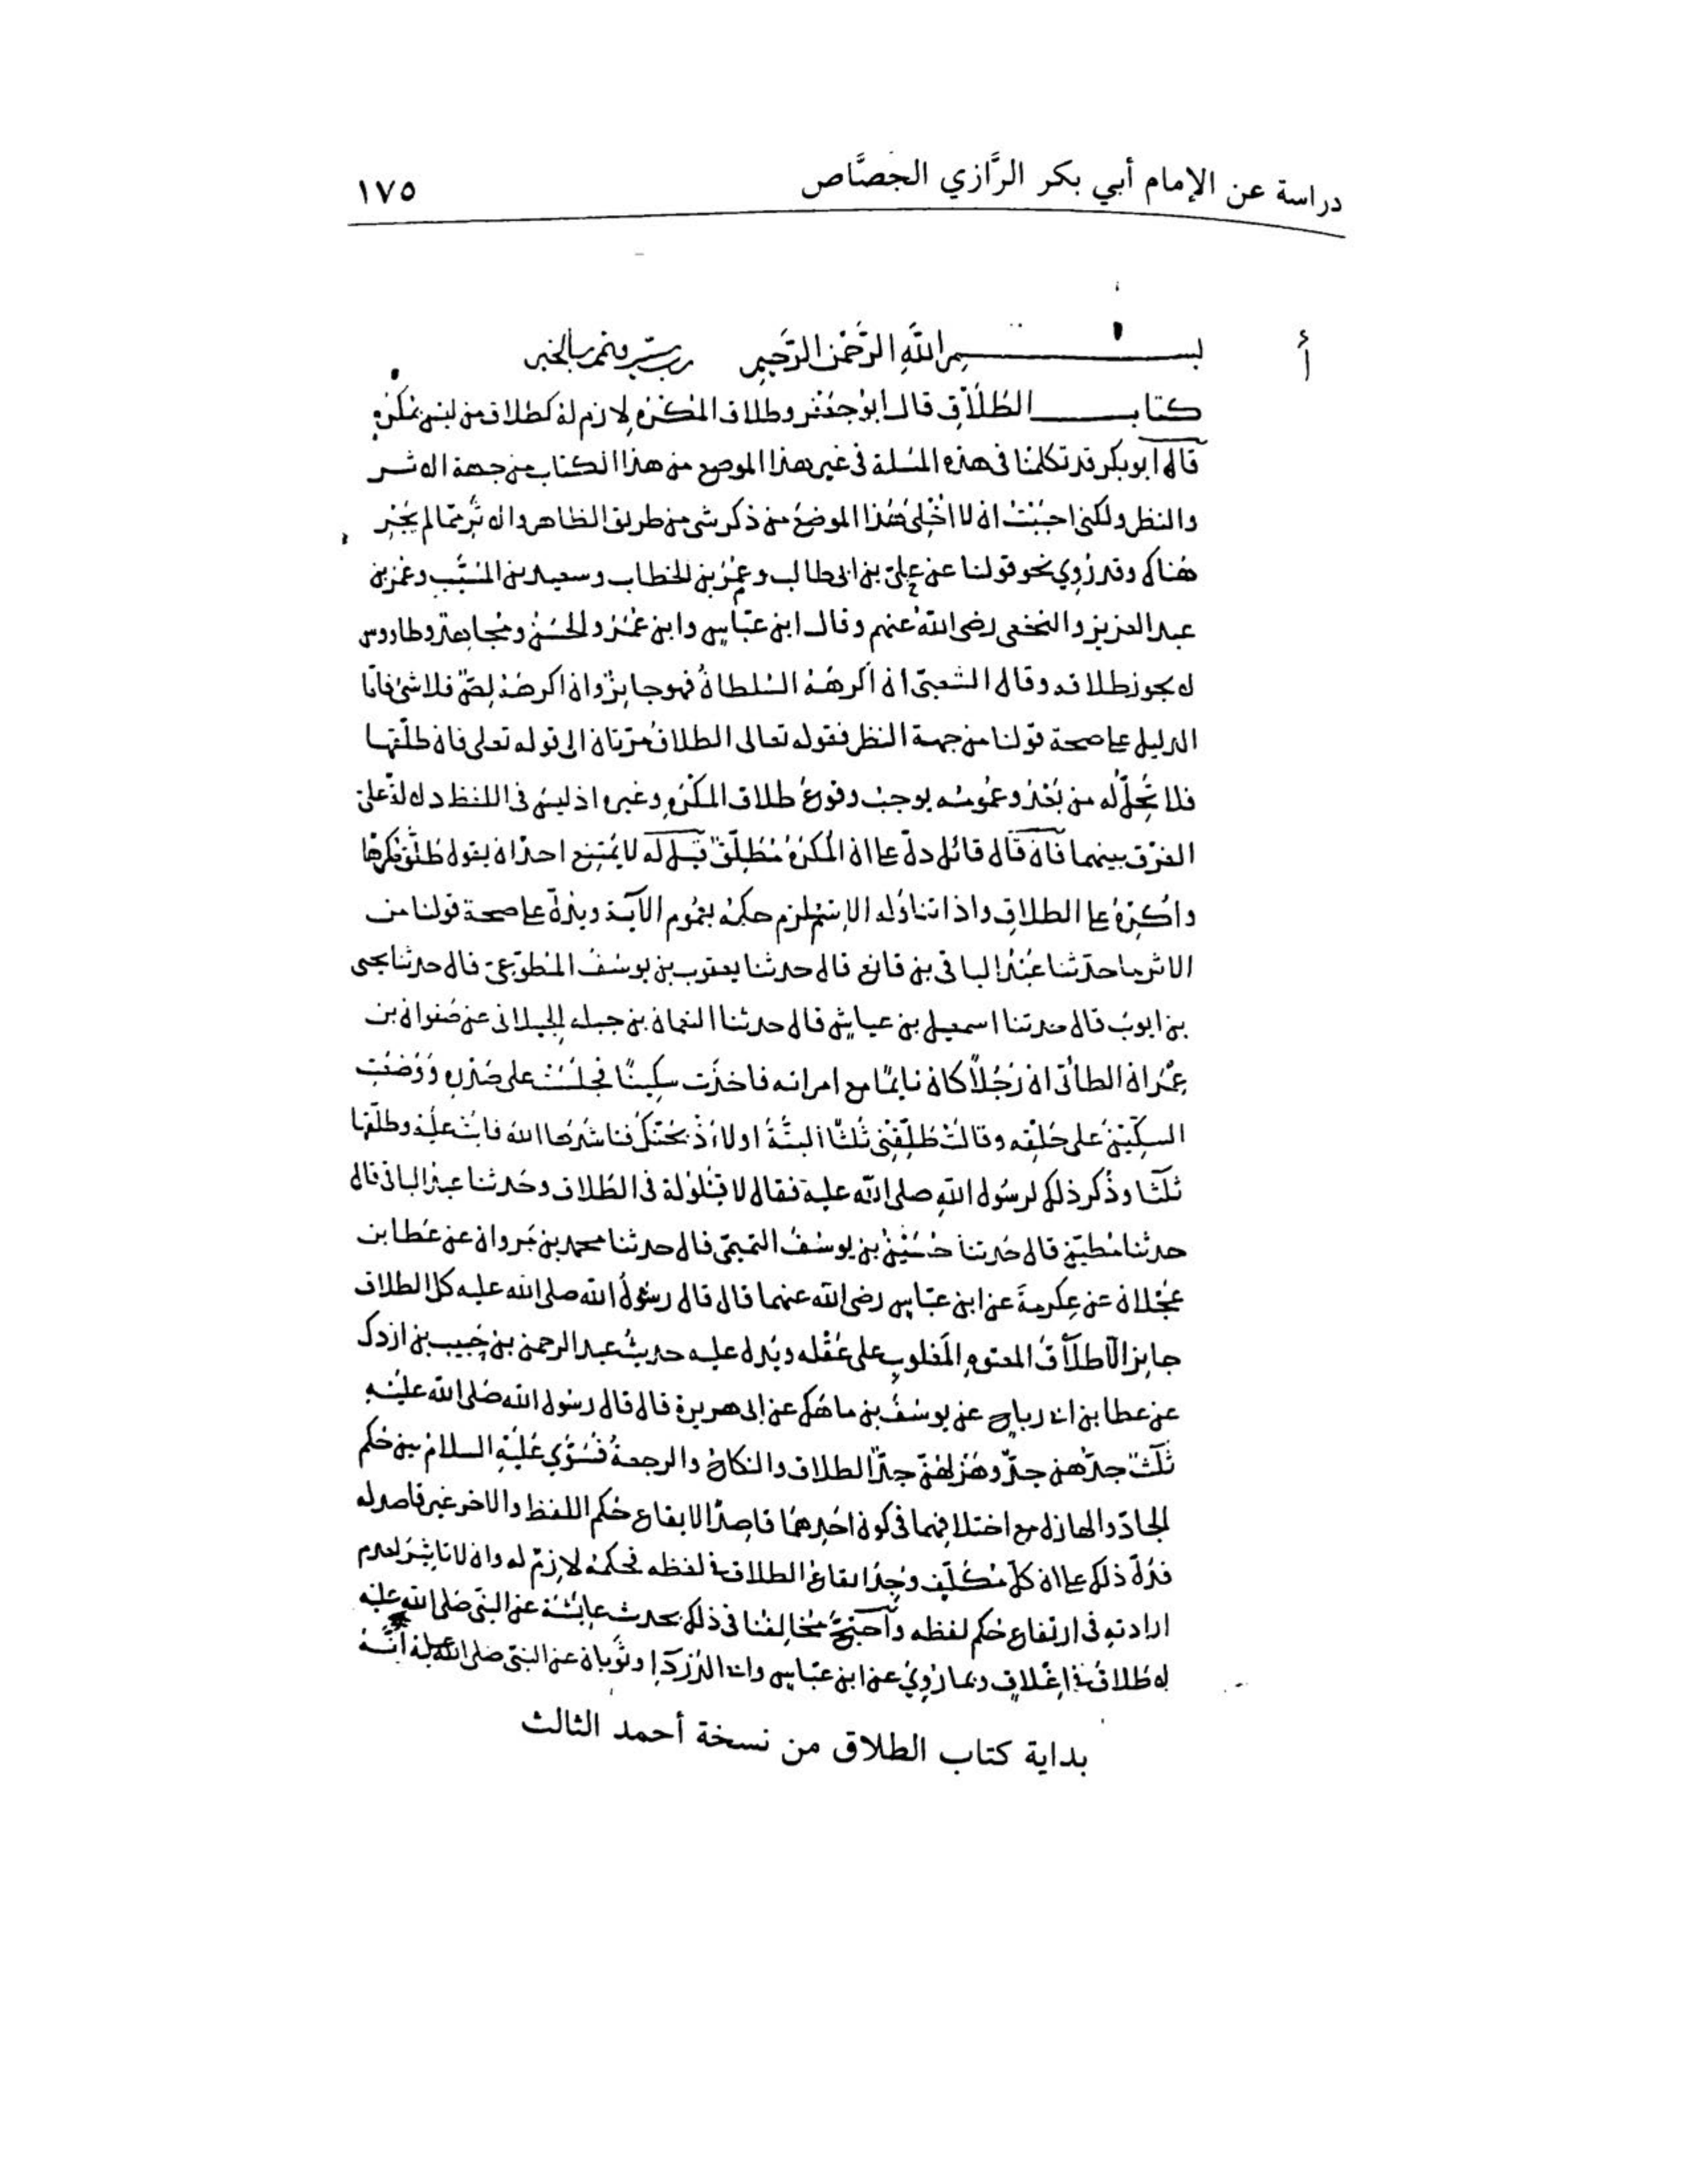 دراسة عن الإمام أبي بكر الرَّازي الجصَّاص
١٧٥
أ
بسم اللَّهِ الرَّحْمَنِ الرَّحِيمِ رب يسر وتمم بالخير
كتاب الطَّلَاقِ قال أبو جَعْفَر وطلاق المُكْرَهِ لازم له كطلاق من ليس بمُكْرَهٍ
قال ابو بكر قد تكلمنا في هذه المسلة في غير هذا الموضع من هذا الكتاب من جهة الاثر
والنظر ولكني احببت ان لا اخلي هذا الموضع من ذكر شي من طريق الظاهر والاثر مما لم يجر
هناك وقد رُوي نحو قولنا عن علي بن ابي طالب وعمر بن الخطاب وسعيد بن المسيَّب وعمر بن
عبد العزيز والنخعي رضي الله عنهم وقال ابن عبّاس وابن عمر والحسن ومجاهد وطاووس
لا يجوز طلاقه وقال الشعبيّ ان اكرهه السلطان فهو جايز وان اكرهه لصّ فلا شئ فامّا
الدليل على صحة قولنا من جهة النظر فقوله تعالى الطلاق مرّتان الى قوله تعلى فان طلّقها
فلا تَحِلُّ له من بَعْدُ وعمومُه يوجب وقوع طلاق المكره وغيره اذ ليس في اللفظ دلالة على
الفرق بينهما فان قال قائل دلّ على ان المكره مُطَلِّقٌ قيل له لا يمتنع احد ان يقول طلّق مكرها
واُكْرِهَ على الطلاق واذا تناوله الاسم لزم حكمه بعموم الآية ويدلّ على صحة قولنا من
الاثر ما حدّثنا عبد الباقي بن قانع قال حدثنا يعقوب بن يوسف المطوّعيّ قال حدثنا يحيى
بن ايوب قال حدثنا اسمعيل بن عياش قال حدثنا النعمان بن جبله الجبلاني عن صفوان بن
عِمْران الطائي ان رَجُلاً كان نايمًا مع امراته فاخذت سكينًا فجلست على صدره ووضعت
السكّين على حلقه وقالت طَلِّقْني ثلثًا البتّة او لاذبحنّك فناشدها الله فابت عليه وطلّقها
ثلثا وذُكر ذلك لرسول الله صلى الله عليه فقال لا قيلولة في الطلاق وحدثنا عبد الباقي قال
حدثنا مُطيّن قال حدثنا حسين بن يوسف التميمي قال حدثنا محمد بن مروان عن عطا بن
عجلان عن عكرمة عن ابن عبّاس رضي الله عنهما قال قال رسول الله صلى الله عليه كل الطلاق
جايز الّا طلاق المعتوه المغلوب على عقله ويدل عليه حديث عبد الرحمن بن حبيب بن ازدك
عن عطا بن ابي رباح عن يوسف بن ماهك عن ابي هريرة قال قال رسول الله صلى الله عليه
ثلث جدّهن جدّ وهزلهنّ جدّ الطلاق والنكاح والرجعة فسَوّى عليه السلام بين حكم
الجادّ والهازل مع اختلافهما في كون احدهما قاصدًا لايقاع حكم اللفظ والاخر غير قاصد له
فدلّ ذلك على ان كلّ مكلّف وجد ايقاع الطلاق في لفظه فحكمه لازم له وان لا تاثير لعدم
ارادته في ارتفاع حكم لفظه واحتجّ مخالفنا في ذلك بحديث عايشة عن النبي صلى الله عليه
لا طلاق في اغلاق وبما رُوِيَ عن ابن عبّاس وابي الدرداء وثوبان عن النبي صلى الله عليه انّه
بداية كتاب الطلاق من نسخة أحمد الثالث